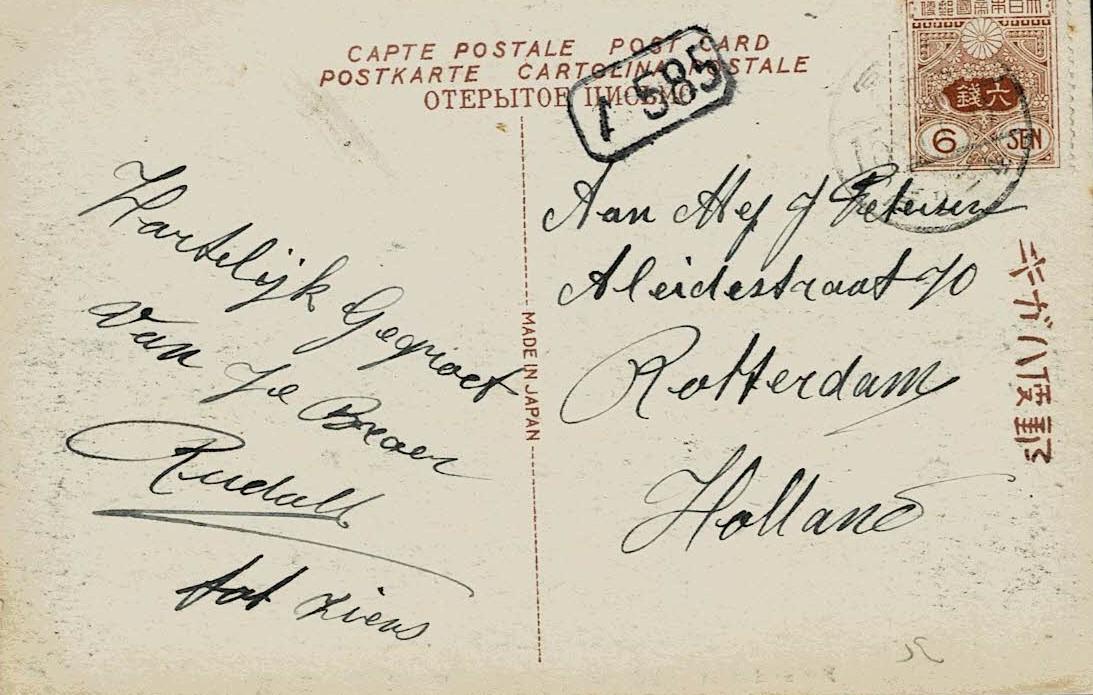 CAPTE POSTALE POST CARD
POSTKARTE CARTOLINA POSTALE
ОТЕРЫТОЕ ПИСЬМО
1 585
大日本帝國郵便
六錢
6 SEN
Hartelijk Gegroet
van Je Broer
Rudolf
tot ziens
MADE IN JAPAN
Aan Mej J Petersen
Aleidestraat 70
Rotterdam
Holland
郵便ハガキ